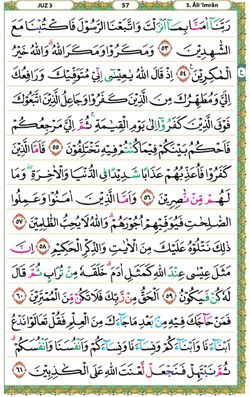 JUZ 3 57 3. Âli 'Imrân
رَبَّنَآ اٰمَنَّا بِمَآ اَنْزَلْتَ وَاتَّبَعْنَا الرَّسُوْلَ فَاكْتُبْنَا مَعَ
الشّٰهِدِيْنَ ﴿٥٣﴾ وَمَكَرُوْا وَمَكَرَ اللّٰهُ ۗ وَاللّٰهُ خَيْرُ
الْمٰكِرِيْنَ ﴿٥٤﴾ اِذْ قَالَ اللّٰهُ يٰعِيْسٰٓى اِنِّيْ مُتَوَفِّيْكَ وَرَافِعُكَ
اِلَيَّ وَمُطَهِّرُكَ مِنَ الَّذِيْنَ كَفَرُوْا وَجَاعِلُ الَّذِيْنَ اتَّبَعُوْكَ
فَوْقَ الَّذِيْنَ كَفَرُوْٓا اِلٰى يَوْمِ الْقِيٰمَةِ ۚ ثُمَّ اِلَيَّ مَرْجِعُكُمْ
فَاَحْكُمُ بَيْنَكُمْ فِيْمَا كُنْتُمْ فِيْهِ تَخْتَلِفُوْنَ ﴿٥٥﴾ فَاَمَّا الَّذِيْنَ
كَفَرُوْا فَاُعَذِّبُهُمْ عَذَابًا شَدِيْدًا فِى الدُّنْيَا وَالْاٰخِرَةِ ۖ وَمَا
لَهُمْ مِّنْ نّٰصِرِيْنَ ﴿٥٦﴾ وَاَمَّا الَّذِيْنَ اٰمَنُوْا وَعَمِلُوا
الصّٰلِحٰتِ فَيُوَفِّيْهِمْ اُجُوْرَهُمْ ۗ وَاللّٰهُ لَا يُحِبُّ الظّٰلِمِيْنَ ﴿٥٧﴾
ذٰلِكَ نَتْلُوْهُ عَلَيْكَ مِنَ الْاٰيٰتِ وَالذِّكْرِ الْحَكِيْمِ ﴿٥٨﴾ اِنَّ
مَثَلَ عِيْسٰى عِنْدَ اللّٰهِ كَمَثَلِ اٰدَمَ ۗ خَلَقَهٗ مِنْ تُرَابٍ ثُمَّ قَالَ
لَهٗ كُنْ فَيَكُوْنُ ﴿٥٩﴾ اَلْحَقُّ مِنْ رَّبِّكَ فَلَا تَكُنْ مِّنَ الْمُمْتَرِيْنَ ﴿٦٠﴾
فَمَنْ حَاۤجَّكَ فِيْهِ مِنْۢ بَعْدِ مَا جَاۤءَكَ مِنَ الْعِلْمِ فَقُلْ تَعَالَوْا نَدْعُ
اَبْنَاۤءَنَا وَاَبْنَاۤءَكُمْ وَنِسَاۤءَنَا وَنِسَاۤءَكُمْ وَاَنْفُسَنَا وَاَنْفُسَكُمْ ۗ
ثُمَّ نَبْتَهِلْ فَنَجْعَلْ لَّعْنَتَ اللّٰهِ عَلَى الْكٰذِبِيْنَ ﴿٦١﴾